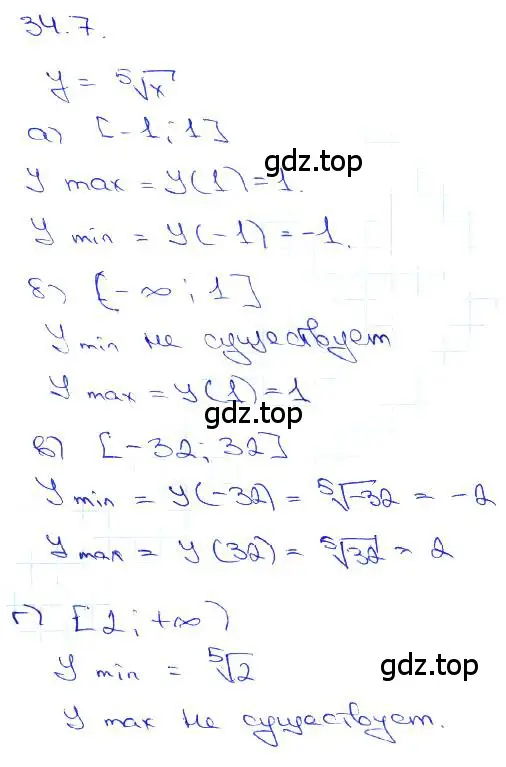 34.7.
y = ⁵√x
а) [-1; 1]
gdz.top
y max = y(1) = 1.
y min = y(-1) = -1.
б) [-∞; 1]
y min не существует
y max = y(1) = 1
gdz.top
в) [-32; 32]
y min = y(-32) = ⁵√-32 = -2
y max = y(32) = ⁵√32 = 2
г) [2; +∞)
y min = ⁵√2
gdz.top
y max не существует.